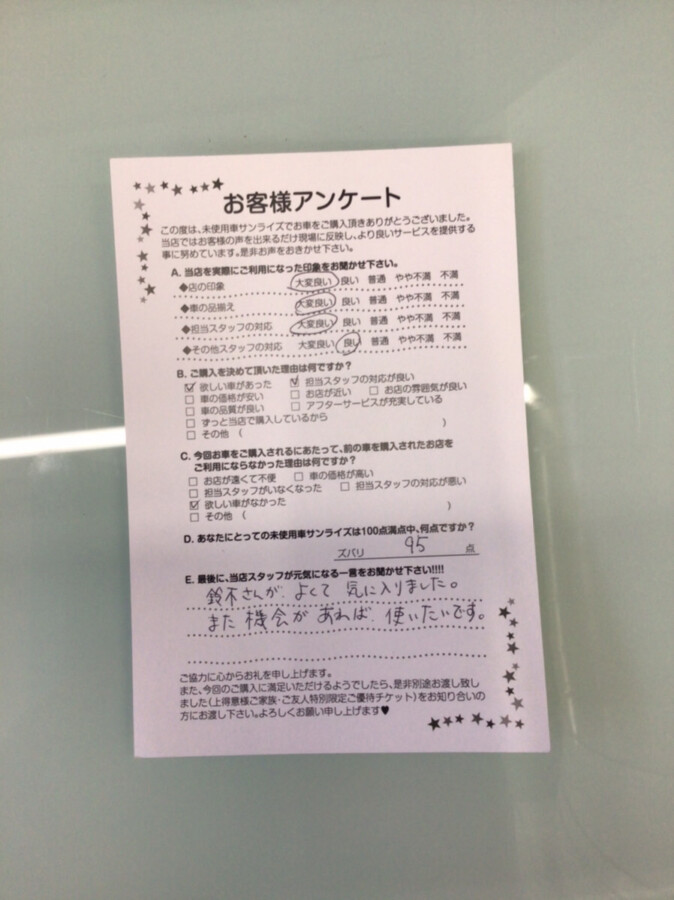 お客様アンケート
この度は、未使用車サンライズでお車をご購入頂きありがとうございました。
当店ではお客様の声を出来るだけ現場に反映し、より良いサービスを提供する
事に努めています。是非お声をおきかせ下さい。
A. 当店を実際にご利用になった印象をお聞かせ下さい。
◆店の印象 大変良い 良い 普通 やや不満 不満
◆車の品揃え 大変良い 良い 普通 やや不満 不満
◆担当スタッフの対応 大変良い 良い 普通 やや不満 不満
◆その他スタッフの対応 大変良い 良い 普通 やや不満 不満
B. ご購入を決めて頂いた理由は何ですか?
☑ 欲しい車があった ☑ 担当スタッフの対応が良い
□ 車の価格が安い □ お店が近い □ お店の雰囲気が良い
□ 車の品質が良い □ アフターサービスが充実している
□ ずっと当店で購入しているから
□ その他 ( )
C. 今回お車をご購入されるにあたって、前の車を購入されたお店を
ご利用にならなかった理由は何ですか?
□ お店が遠くて不便 □ 車の価格が高い
□ 担当スタッフがいなくなった □ 担当スタッフの対応が悪い
☑ 欲しい車がなかった
□ その他 ( )
D. あなたにとっての未使用車サンライズは100点満点中、何点ですか?
ズバリ 95 点
E. 最後に、当店スタッフが元気になる一言をお聞かせ下さい!!!!
鈴木さんが、よくて 気に入りました。
また 機会が あれば、使いたいです。
ご協力に心からお礼を申し上げます。
また、今回のご購入に満足いただけるようでしたら、是非別途お渡し致し
ました(上得意様ご家族・ご友人特別限定ご優待チケット)をお知り合いの
方にお渡し下さい。よろしくお願い申し上げます♥